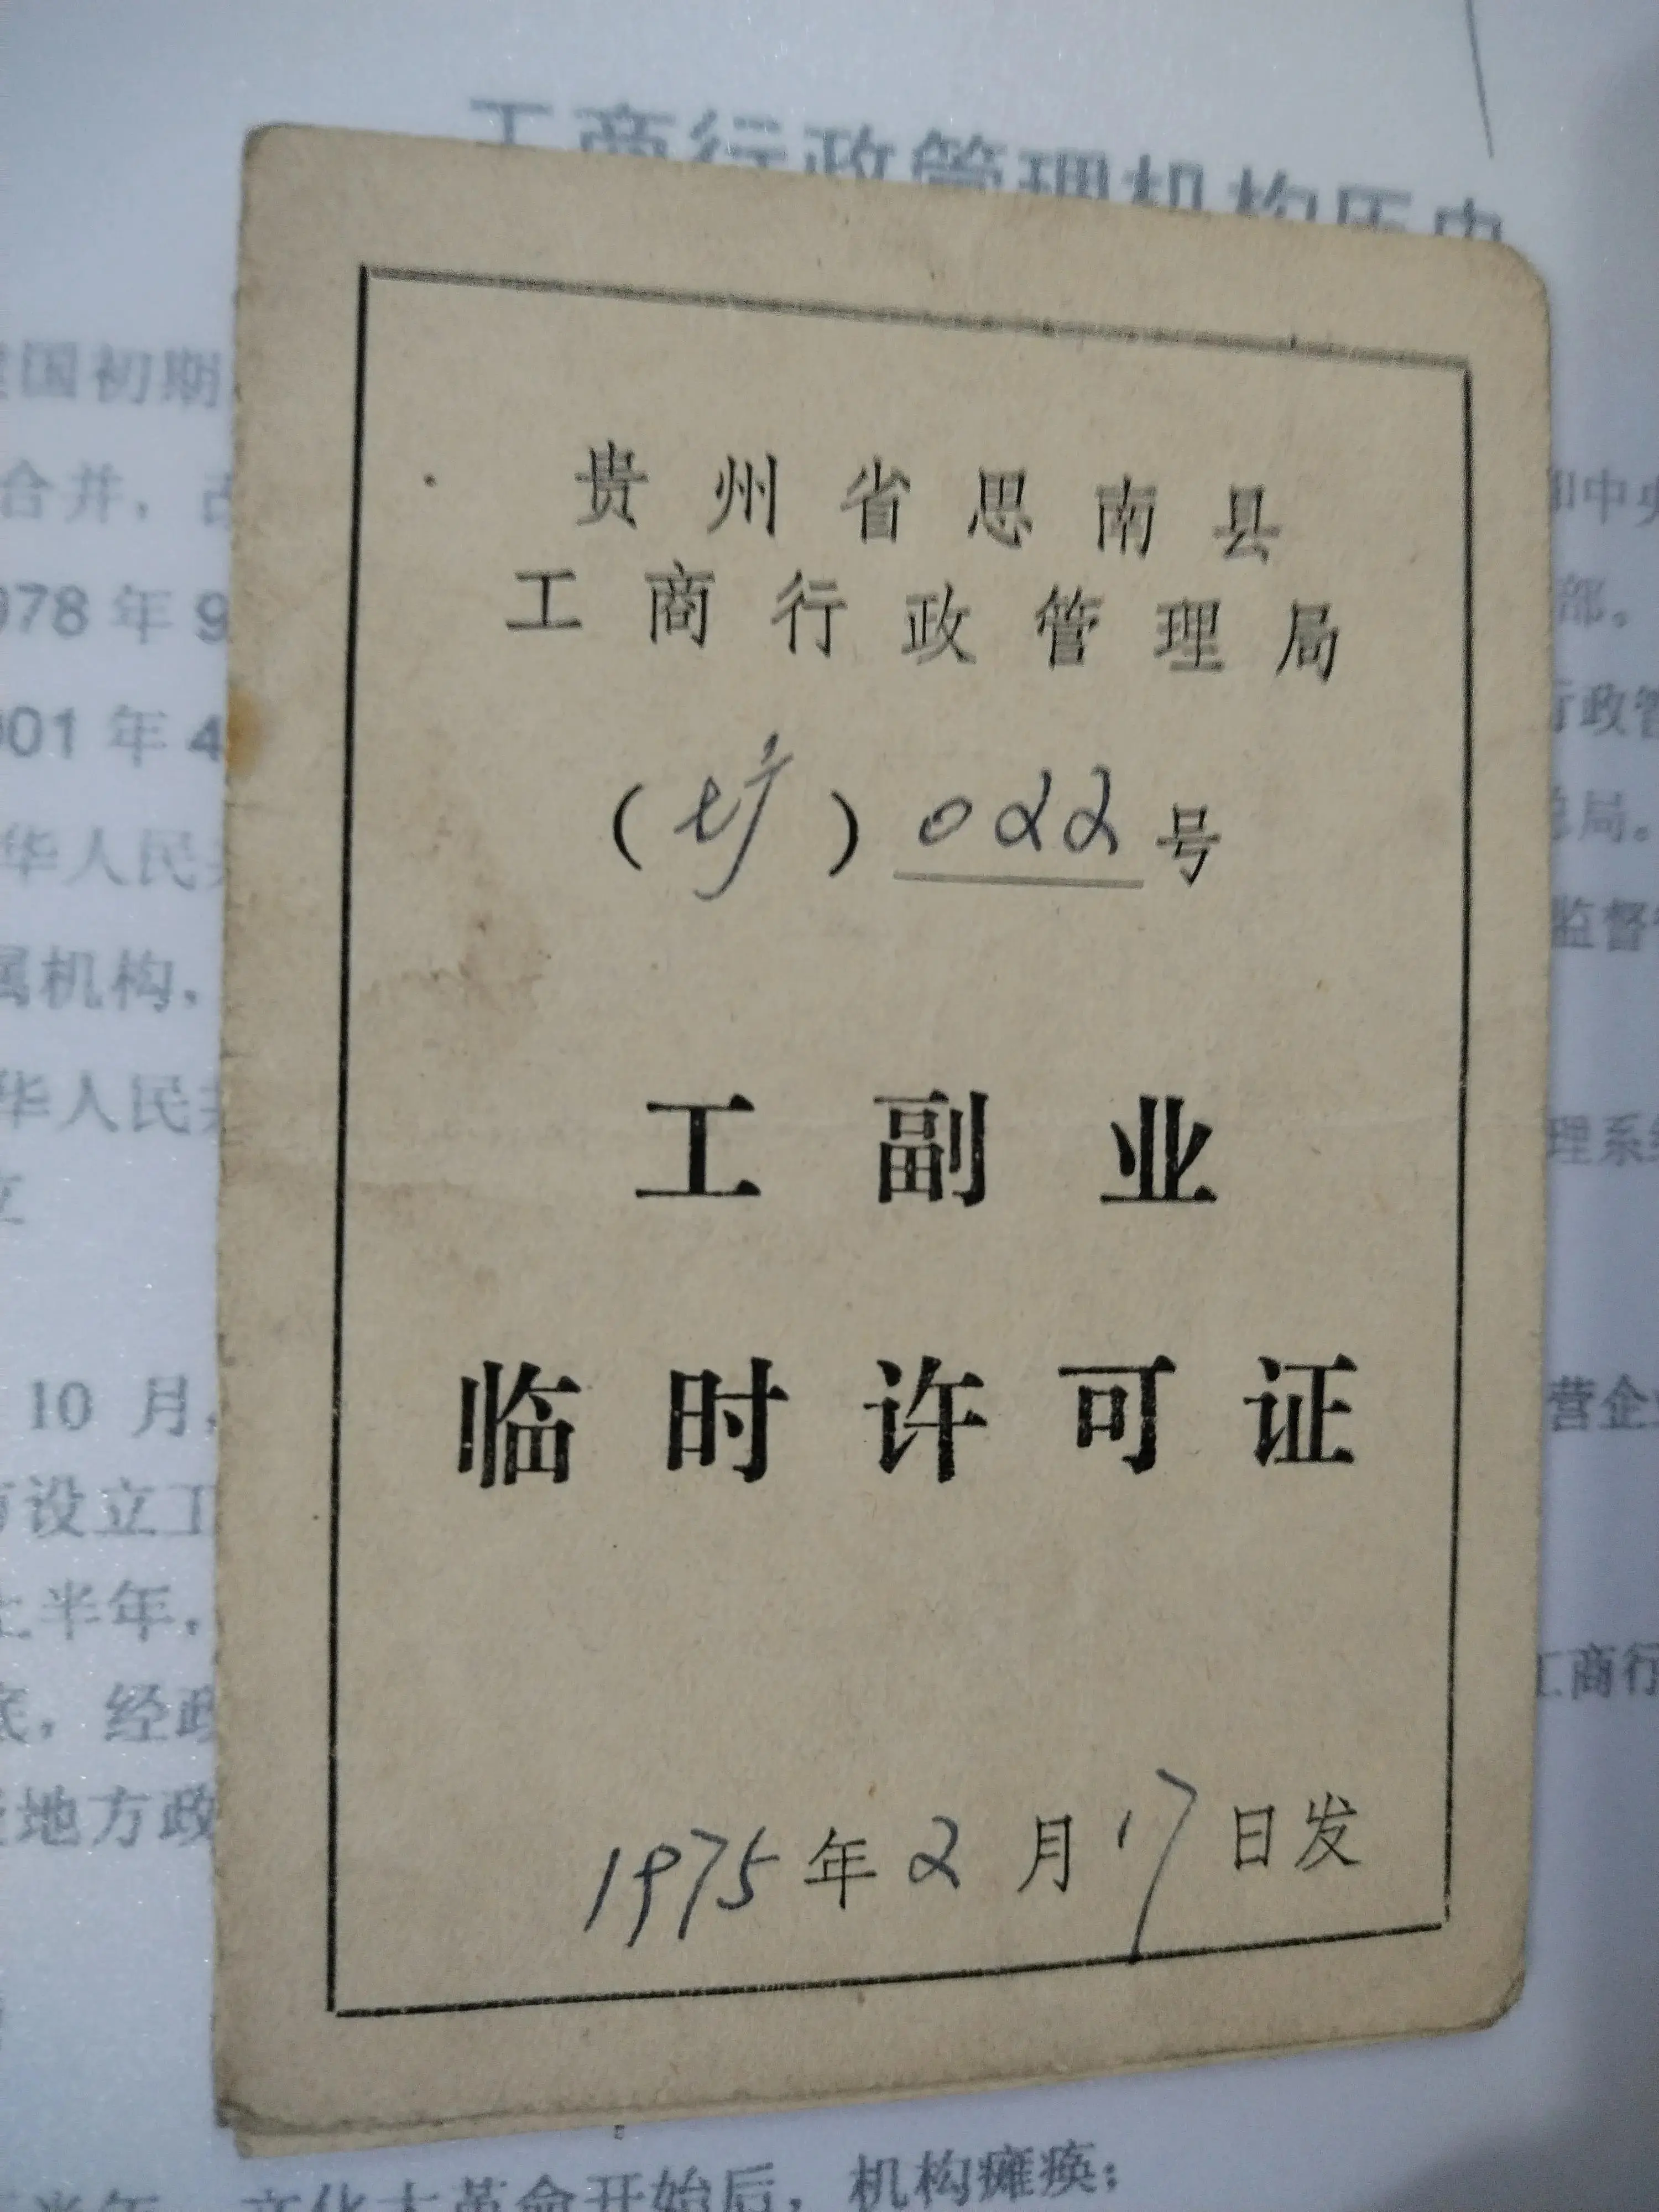 工商行政管理机构历史
贵州省思南县
工商行政管理局
( ) 022号
工副业
临时许可证
1975年2月17日发
国初期
合并，
中央
978年9
部。
001年4
行政管
华人民共
总局。
属机构，
监督管
华人民共
理系统
立
10 月，
营企业
设立工
上半年，
工商行
底，经政
地方政
半年，文化大革命开始后，机构瘫痪；